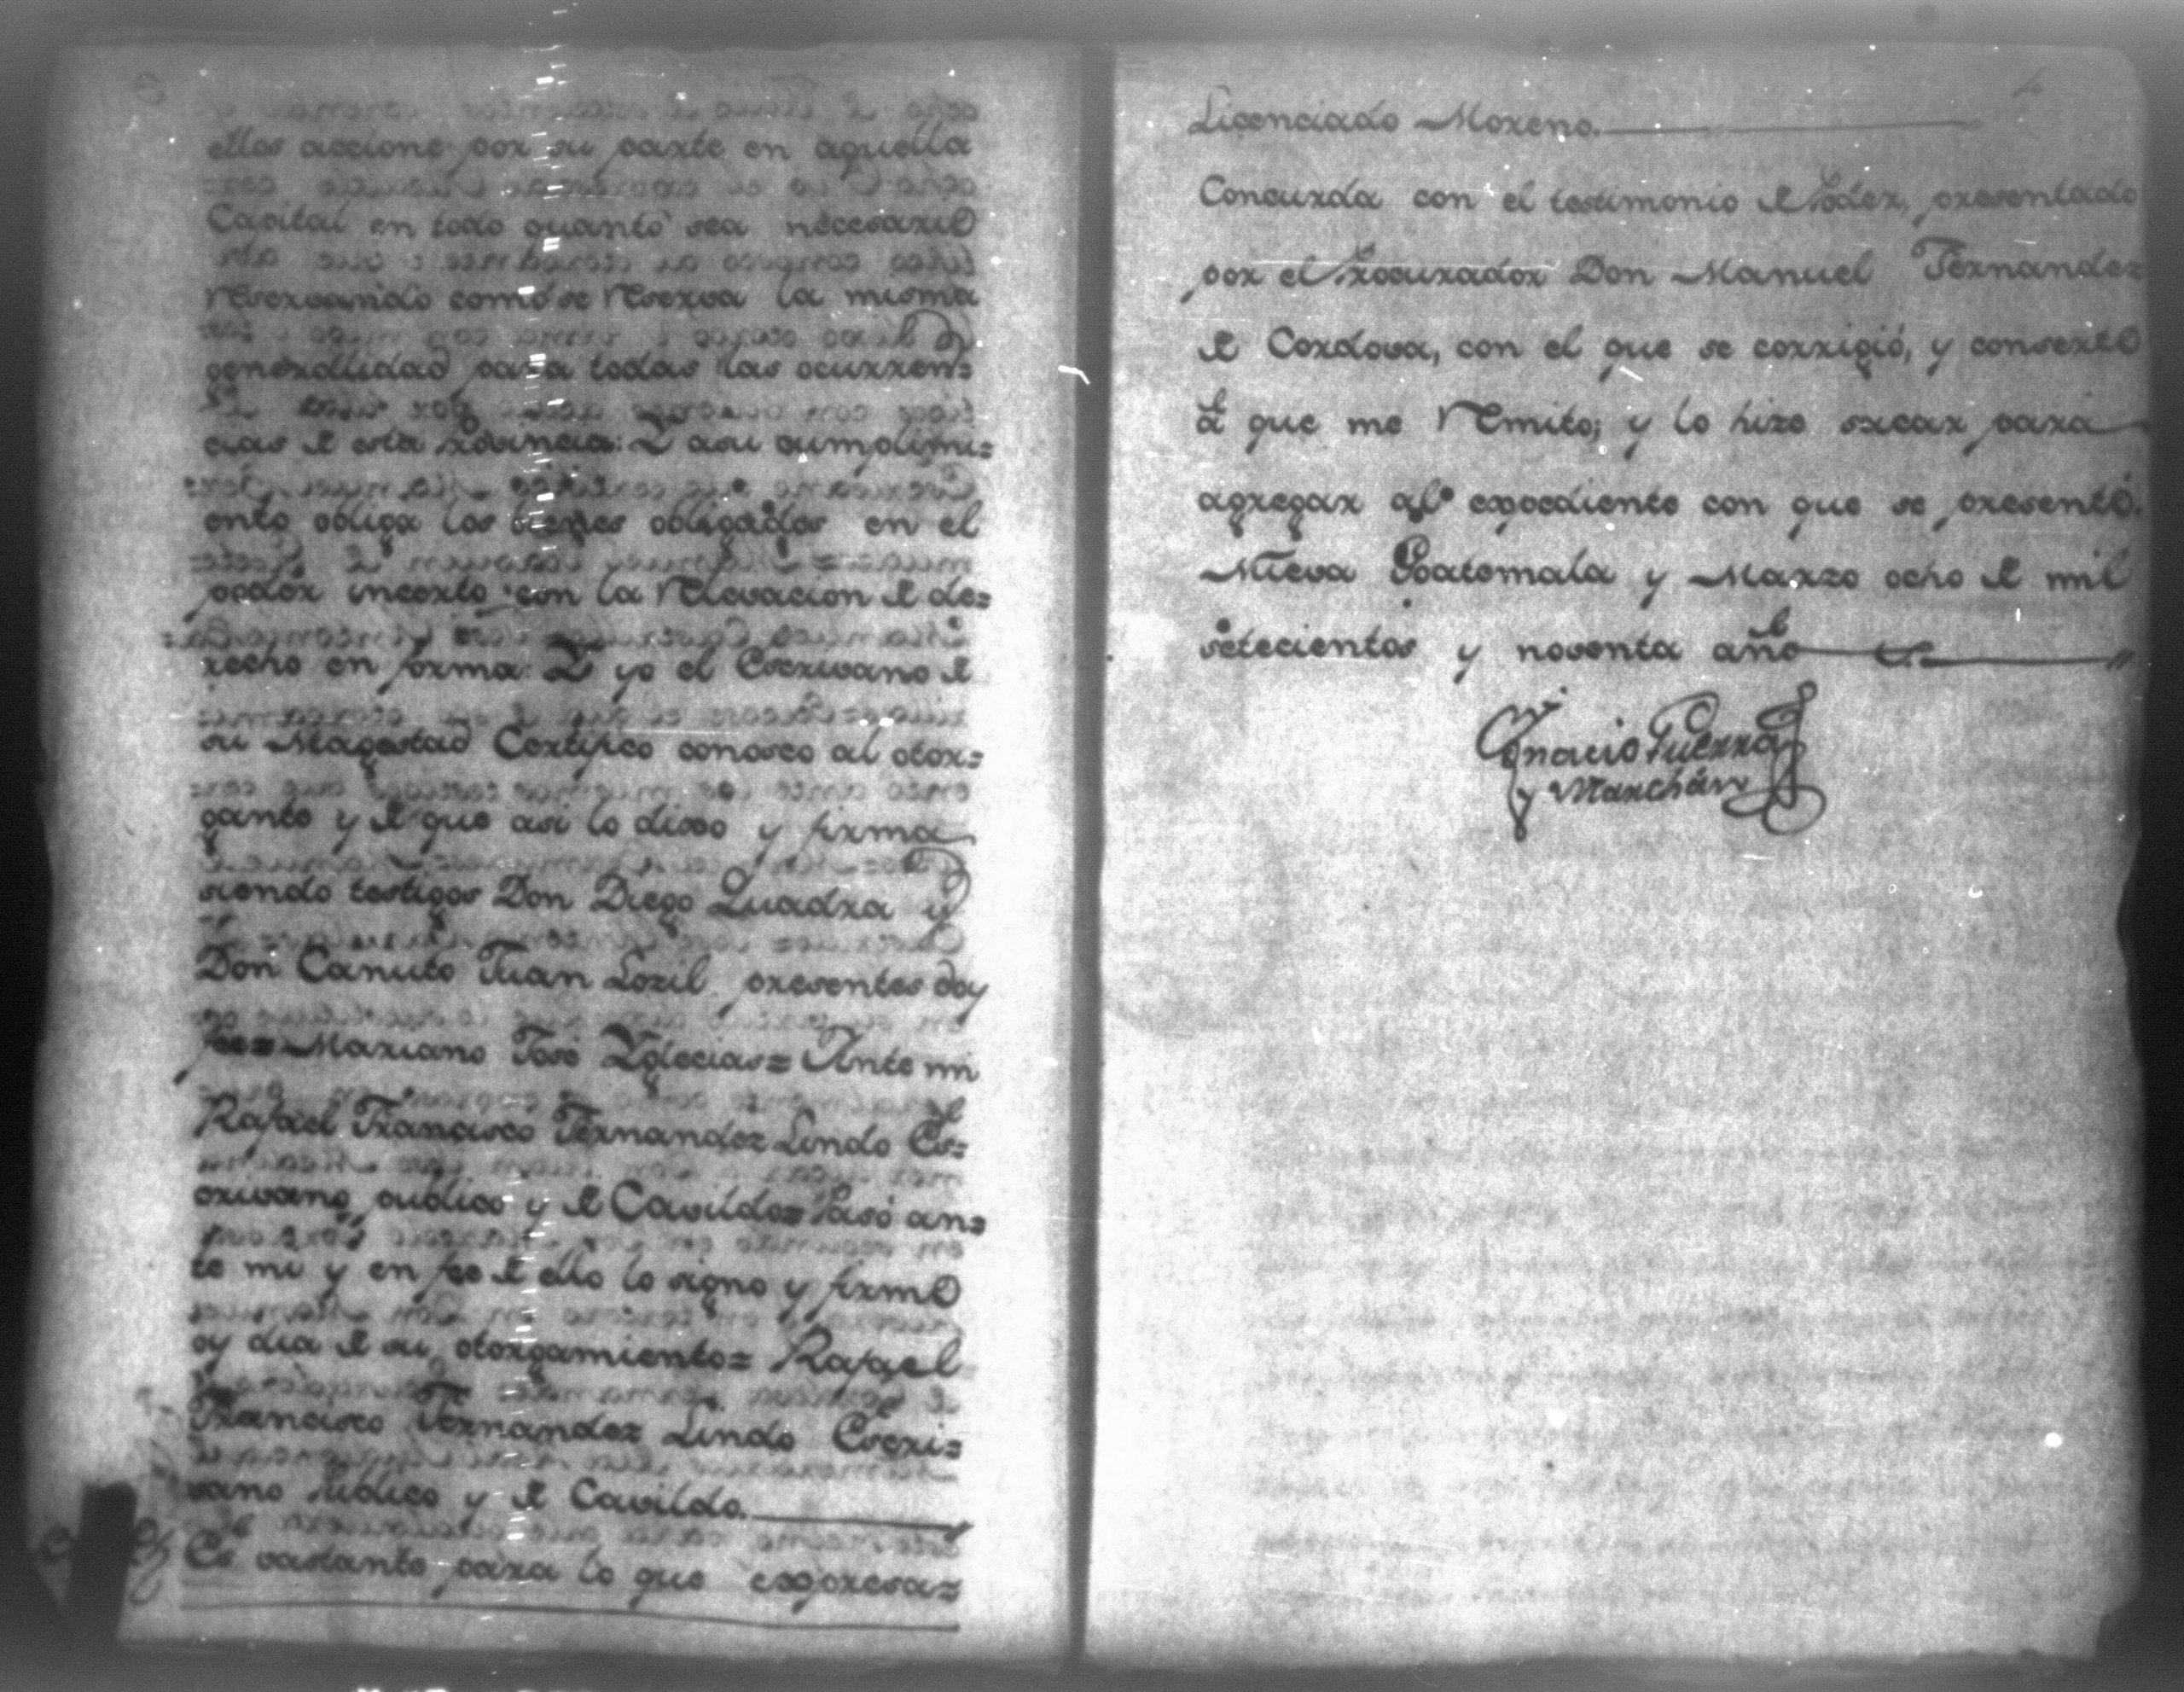 ellas accione por su parte en aquella
Capital en todo quanto sea necesario
Reservando como se Reserva la misma
generallidad para todas las ocurren=
cias de esta Provincia: Y asu cumplimi=
ento obliga los bienes obligados en el
poder incerto con la Relevacion de de=
recho en forma: Y yo el Escrivano de
su Magestad Certifico conosco al otor=
gante y de que asi lo dixo y firma
siendo testigos Don Diego Quadra y
Don Canuto Juan Lozil presentes doy
fee= Mariano José Yglecias= Ante mi
Rafael Francisco Fernandez Lindo Es=
crivano publico y de Cavildo= Pasó an=
te mi y en fee de ello lo signo y firmo
oy dia de su otorgamiento= Rafael
Francisco Fernandez Lindo Escri=
vano Publico y de Cavildo.
Es vastante para lo que expresa=
Licenciado Moreno.
Concurda con el testimonio de Poder, presentado
por el Procurador Don Manuel Fernandez
de Cordova, con el que se corrigió, y conserto
á que me Remito; y lo hize sacar para
agregar al expediente con que se presentó.
Nueva Goatemala y Marzo ocho de mil
setecientos y noventa años
Ignacio Guerra
y Marchán